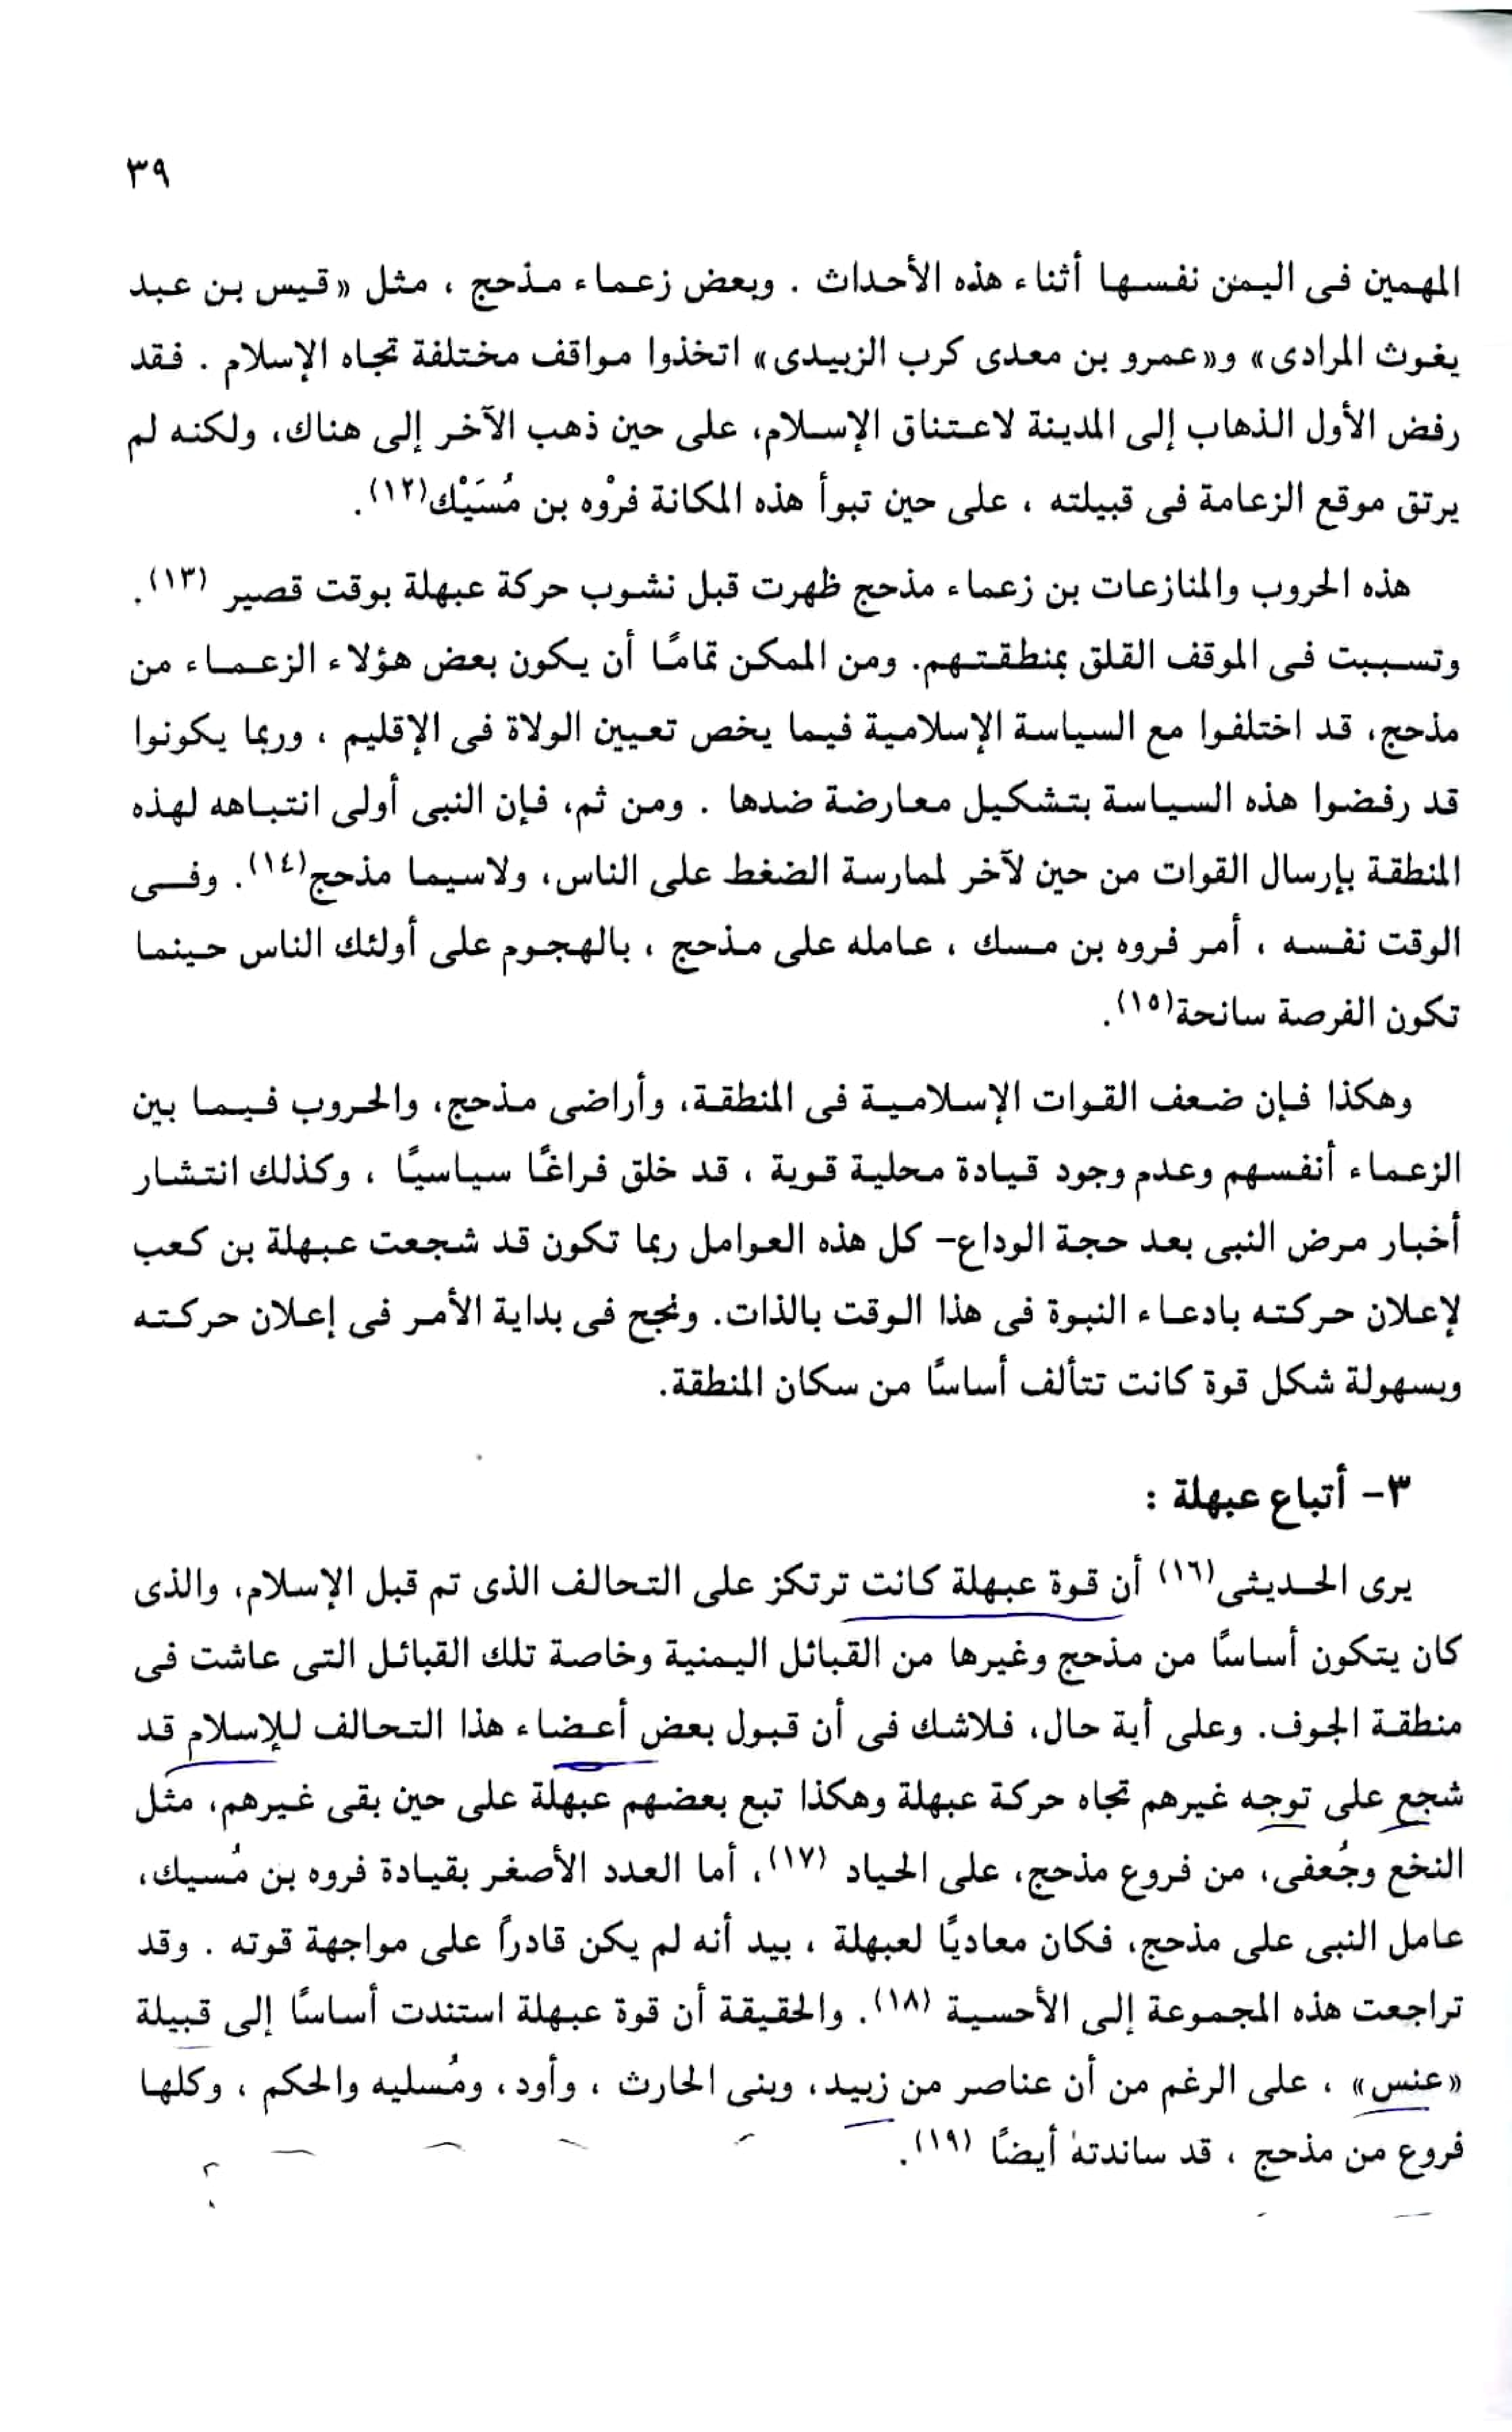 ٣٩
المهمين فى اليمن نفسها أثناء هذه الأحداث . وبعض زعماء مذحج ، مثل «قيس بن عبد
يغوث المرادى» و«عمرو بن معدى كرب الزبيدى» اتخذوا مواقف مختلفة تجاه الإسلام . فقد
رفض الأول الذهاب إلى المدينة لاعتناق الإسلام، على حين ذهب الآخر إلى هناك، ولكنه لم
يرتق موقع الزعامة فى قبيلته ، على حين تبوأ هذه المكانة فرْوه بن مُسَيْك(١٢).
هذه الحروب والمنازعات بن زعماء مذحج ظهرت قبل نشوب حركة عبهلة بوقت قصير (١٣).
وتسببت فى الموقف القلق بمنطقتهم. ومن الممكن تمامًا أن يكون بعض هؤلاء الزعماء من
مذحج، قد اختلفوا مع السياسة الإسلامية فيما يخص تعيين الولاة فى الإقليم ، وربما يكونوا
قد رفضوا هذه السياسة بتشكيل معارضة ضدها . ومن ثم، فإن النبى أولى انتباهه لهذه
المنطقة بإرسال القوات من حين لآخر لممارسة الضغط على الناس، ولاسيما مذحج(١٤). وفى
الوقت نفسه ، أمر فروه بن مسك ، عامله على مذحج ، بالهجوم على أولئك الناس حينما
تكون الفرصة سانحة(١٥).
وهكذا فإن ضعف القوات الإسلامية فى المنطقة، وأراضى مذحج، والحروب فيما بين
الزعماء أنفسهم وعدم وجود قيادة محلية قوية ، قد خلق فراغًا سياسيًا ، وكذلك انتشار
أخبار مرض النبى بعد حجة الوداع- كل هذه العوامل ربما تكون قد شجعت عبهلة بن كعب
لإعلان حركته بادعاء النبوة فى هذا الوقت بالذات. ونجح فى بداية الأمر فى إعلان حركته
وبسهولة شكل قوة كانت تتألف أساسًا من سكان المنطقة.
٣- أتباع عبهلة :
يرى الحديثى(١٦) أن قوة عبهلة كانت ترتكز على التحالف الذى تم قبل الإسلام، والذى
كان يتكون أساسًا من مذحج وغيرها من القبائل اليمنية وخاصة تلك القبائل التى عاشت فى
منطقة الجوف. وعلى أية حال، فلاشك فى أن قبول بعض أعضاء هذا التحالف للإسلام قد
شجع على توجه غيرهم تجاه حركة عبهلة وهكذا تبع بعضهم عبهلة على حين بقى غيرهم، مثل
النخع وجُعفى، من فروع مذحج، على الحياد (١٧)، أما العدد الأصغر بقيادة فروه بن مُسيك،
عامل النبى على مذحج، فكان معاديًا لعبهلة ، بيد أنه لم يكن قادراً على مواجهة قوته . وقد
تراجعت هذه المجموعة إلى الأحسية (١٨). والحقيقة أن قوة عبهلة استندت أساسًا إلى قبيلة
«عنس» ، على الرغم من أن عناصر من زبيد، وبنى الحارث ، وأود، ومُسليه والحكم ، وكلها
فروع من مذحج ، قد ساندته أيضًا (١٩).